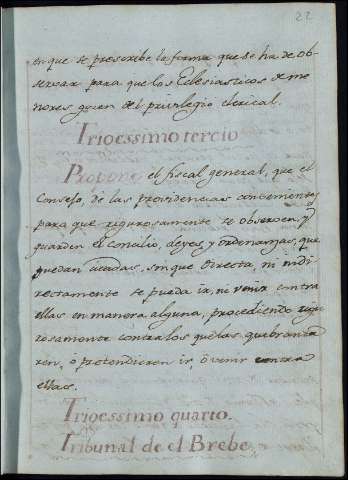 22
en que se prescribe la forma que se ha de ob-
servar para que los Eclesiasticos de me-
nores gozen del privilegio clerical.
Tricessimo tercio
Propone el fiscal general, que el
Consejo, dè las providencias concernientes
para que rigurosamente se observen, y
guarden el Concilio, Leyes, y ordenanzas, que
quedan citadas, sin que directa, ni indi-
rectamente se pueda ir, ni venir contra
ellas en manera alguna, procediendo rigu-
rosamente contra los que las quebranta-
ren, ò pretendieren ir, ò venir contra
ellas.
Tricessimo quarto.
Tribunal de el Brebe